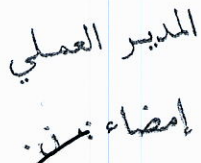 المدير العملي
إمضاء